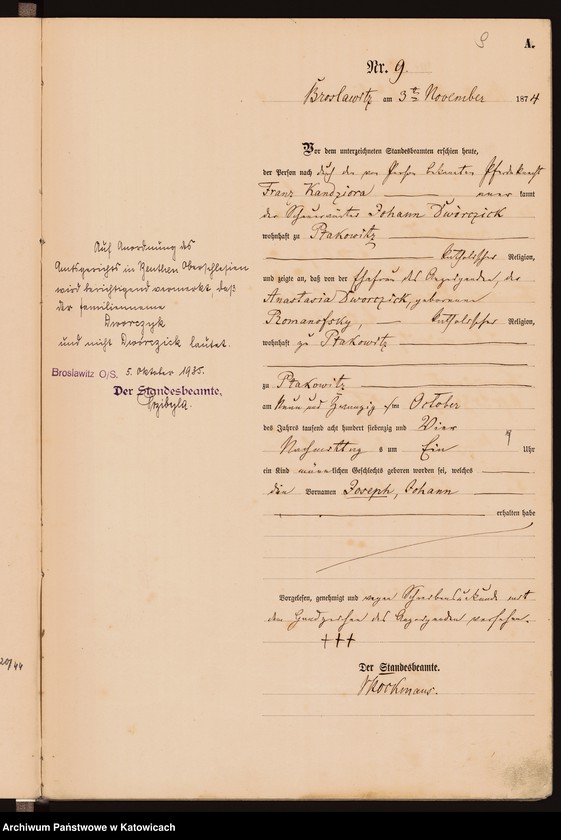 9
A.
Nr. 9.
Broslawitz am 3ten November 1874
Vor dem unterzeichneten Standesbeamten erschien heute,
der Person nach durch den von Person bekannten Pferdeknecht
Franz Kandziora kannt
der Johann Dworczick
wohnhaft zu Ptakowitz
katholischer Religion,
und zeigte an, daß von der Ehefrau des Anzeigenden, der
Anastasia Dworczick, geborenen
Romanofsky, katholischer Religion,
wohnhaft zu Ptakowitz
zu Ptakowitz
am Neun und Zwanzigsten October
des Jahres tausend acht hundert siebenzig und Vier
Nachmittag s um Ein Uhr
ein Kind männlichen Geschlechts geboren worden sei, welches
die Vornamen Joseph, Johann
erhalten habe
Vorgelesen, genehmigt und wegen Schreibensunkunde mit
dem Handzeichen des Anzeigenden versehen.
+++
Der Standesbeamte.
Auf Anordnung des
Amtsgerichts in Beuthen Oberschlesien
wird berichtigend vermerkt, daß
der Familienname
Dworczyk
und nicht Dworczick lautet.
Broslawitz O/S. 5. Oktober 1935.
Der Standesbeamte,
Przibyla.
Archiwum Państwowe w Katowicach